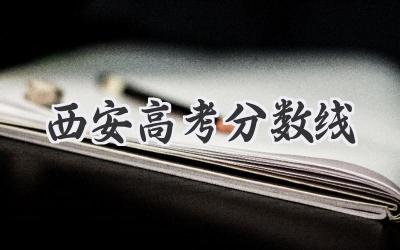 西安高考分数线